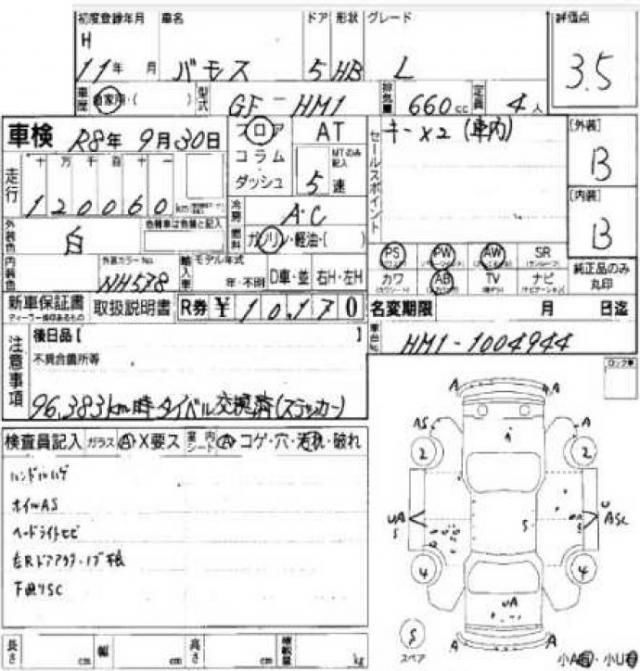 初度登録年月 車名 ドア 形状 グレード 評価点
H 11年 月 バモス 5 HB L 3.5
車歴 自家用・( ) 型式 GF-HM1 排気量 660cc 定員 4人
車検 R8年 9月30日 フロア コラム・ダッシュ AT MTのみ記入 5速
セールスポイント キー×2 (車内)
[外装] B
[内装] B
走行 十万千百十一 120060km
冷房 A・C
燃料 ガソリン・軽油・( )
外装色 白 色替車は色替と記入
内装色 外装カラーNo. NH578 輸入車 モデル年式 年・不明 D車・並 右H・左H
PS PW AW SR
カワ AB TV ナビ
純正品のみ丸印
新車保証書 取扱説明書 R券 ¥10,170 名変期限 月 日迄
ディーラー捺印あるもの
車台No. HM1-1004944
注意事項 後日品[ ]
不具合箇所等
96,383km時タイベル交換済(ステッカー)
ロック車
検査員記入 ガラス A・X要ス 室内シート A・コゲ・穴・汚れ・破れ
ハンドルハゲ
ホイルAS
ヘッドライトヒビ
下廻りSC
A A
AS 2 2 A
UA S S U ASC
4 4
UA
A A
S スペア
長さ cm 幅 cm 高さ cm 積載量 kg